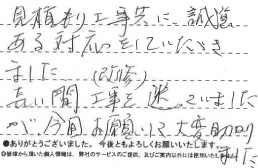 見積もり工事共に誠意
ある対応をしていただき
ました (改修)
長い間工事を迷っていました
が、今回お願いして大変助かり
ました
●ありがとうございました。今後ともよろしくお願いいたします。
◎皆様から頂いた個人情報は、弊社のサービスのご提供、及びご案内以外には使用いたしません。